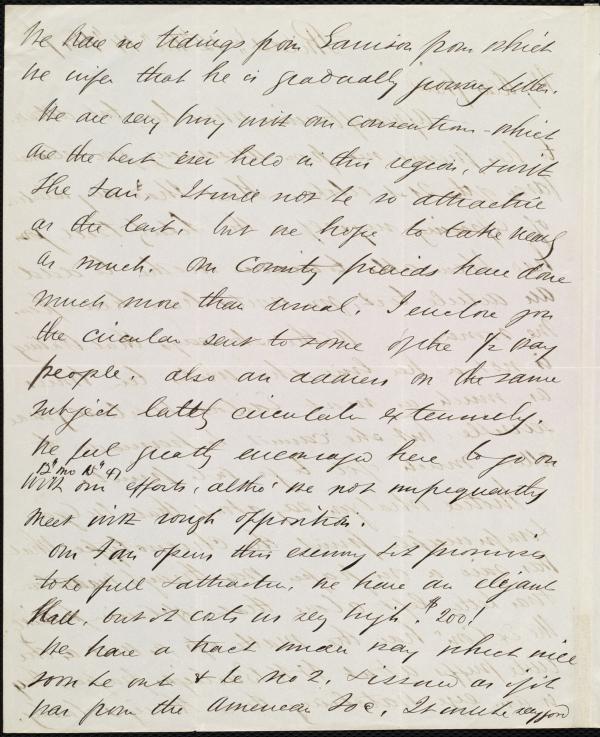 We have no tidings from Garrison from which
we infer that he is gradually growing better.
We are very busy with our conventions - which
are the best ever held in this region, & with
the Fair. It will not be so attractive
as the last, but we hope to take nearly
as much. Our County friends have done
much more than usual. I enclose you
the circular sent to some of the 1/2 way
people. also an address on the same
subject lately circulated extensively.
We feel greatly encouraged here to go on
12th mo 15th 47
with our efforts, altho' we not unfrequently
meet with rough opposition.
Our Fair opens this evening & it promises
to be full & attractive, we have an elegant
Hall, but it costs us very high. $200!
We have a tract under way which will
soon be out & be No 2. & issued as if it
was from the American Soc. It will be very good